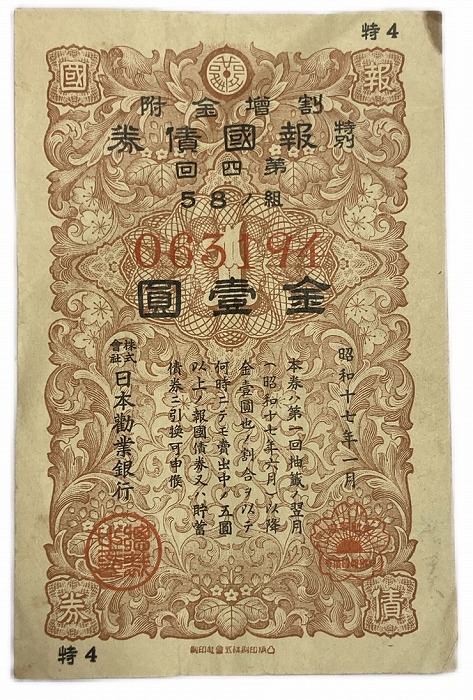 特4
報國
割増金附
特別報國債券
第四回
58ノ組
063194
金壹圓
昭和十七年一月
本券ハ第一回抽籤ノ翌月
(昭和十七年六月)以降
金壹圓也ノ割合ヲ以テ
何時ニテモ賣出中ノ五圓
以上ノ報國債券又ハ貯蓄
債券ニ引換可申候
株式會社日本勸業銀行
債券
特4
凸版印刷株式會社印刷